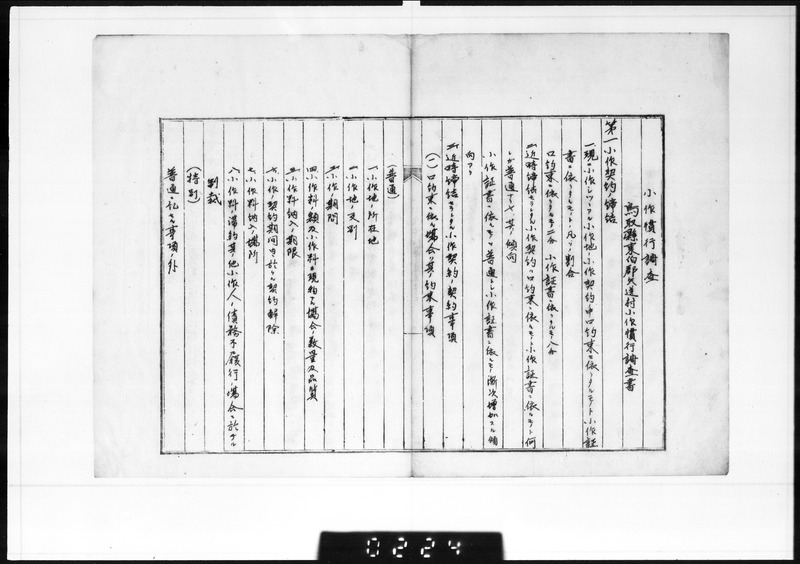 小作慣行調査
鳥取縣東伯郡大誠村小作慣行調査書
第一 小作契約ノ締結
一、現ニ小作シツヽアル小作地ノ小作契約中口約束ニ依リタルモノト小作証
書ニ依リタルモノトノ凡ソノ割合
口約束ニ依リタルモノ二分 小作証書ニ依リタルモノ八分
二、近時締結セラルヽ小作契約ハ口約束ニ依ルモノト小作証書ニ依ルモノト何
レガ普通ナルヤ其ノ傾向
小作証書ニ依ルモノヲ普通トシ小作証書ニ依ルモノ漸次増加スル傾
向アリ
三、近時締結セラルヽ小作契約ノ契約事項
(一)口約束ニ依ル場合ノ其ノ約束事項
(普通)
一、小作地ノ所在地
二、小作地ノ反別
三、小作ノ期間
四、小作料ノ類及小作料ガ現物ナル場合ノ数量及品質
五、小作料納入ノ期限
六、小作ノ契約期間中ニ於ケル契約解除
七、小作料納入ノ場所
八、小作料滞納其ノ他小作人ノ債務不履行ノ場合ニ於ケル
制裁
(特別)
普通ニ記セル事項ノ外
0224